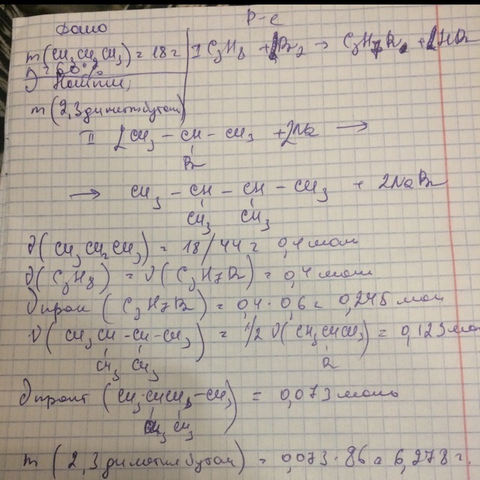 Дано Р-е
m(CH₃CH₂CH₃) = 18г I C₃H₈ + Br₂ → C₃H₇Br + HBr
Найти:
m(2,3диметбутан)
II 2CH₃ – CH – CH₃ + 2Na →
Br
→ CH₃ – CH – CH – CH₃ + 2NaBr
CH₃ CH₃
ν(CH₃CH₂CH₃) = 18/44 = 0,4 моль
ν(C₃H₈) = ν(C₃H₇Br) = 0,4 моль
νпракт(C₃H₇Br) = 0,4 · 0,6 = 0,245 мол
ν(CH₃CH–CH–CH₃) = 1/2 ν(CH₃CHCH₃) = 0,123мол
CH₃ CH₃ Br
νпракт(CH₃CHCH–CH₃) = 0,073 моль
CH₃ CH₃
m(2,3 диметилбутан) = 0,073 · 86 = 6,278 г.